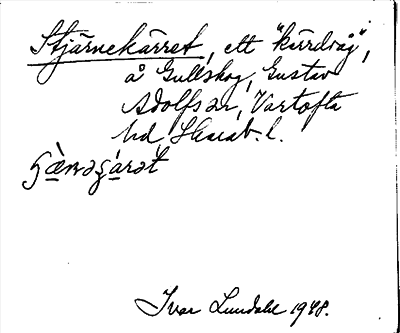 Stjärnekärret, ett "kärdråg",
å Gullskog, Gustav
Adolfs sn, Vartofta
hd, Skarab. l.
Ivar Lundahl 1948.